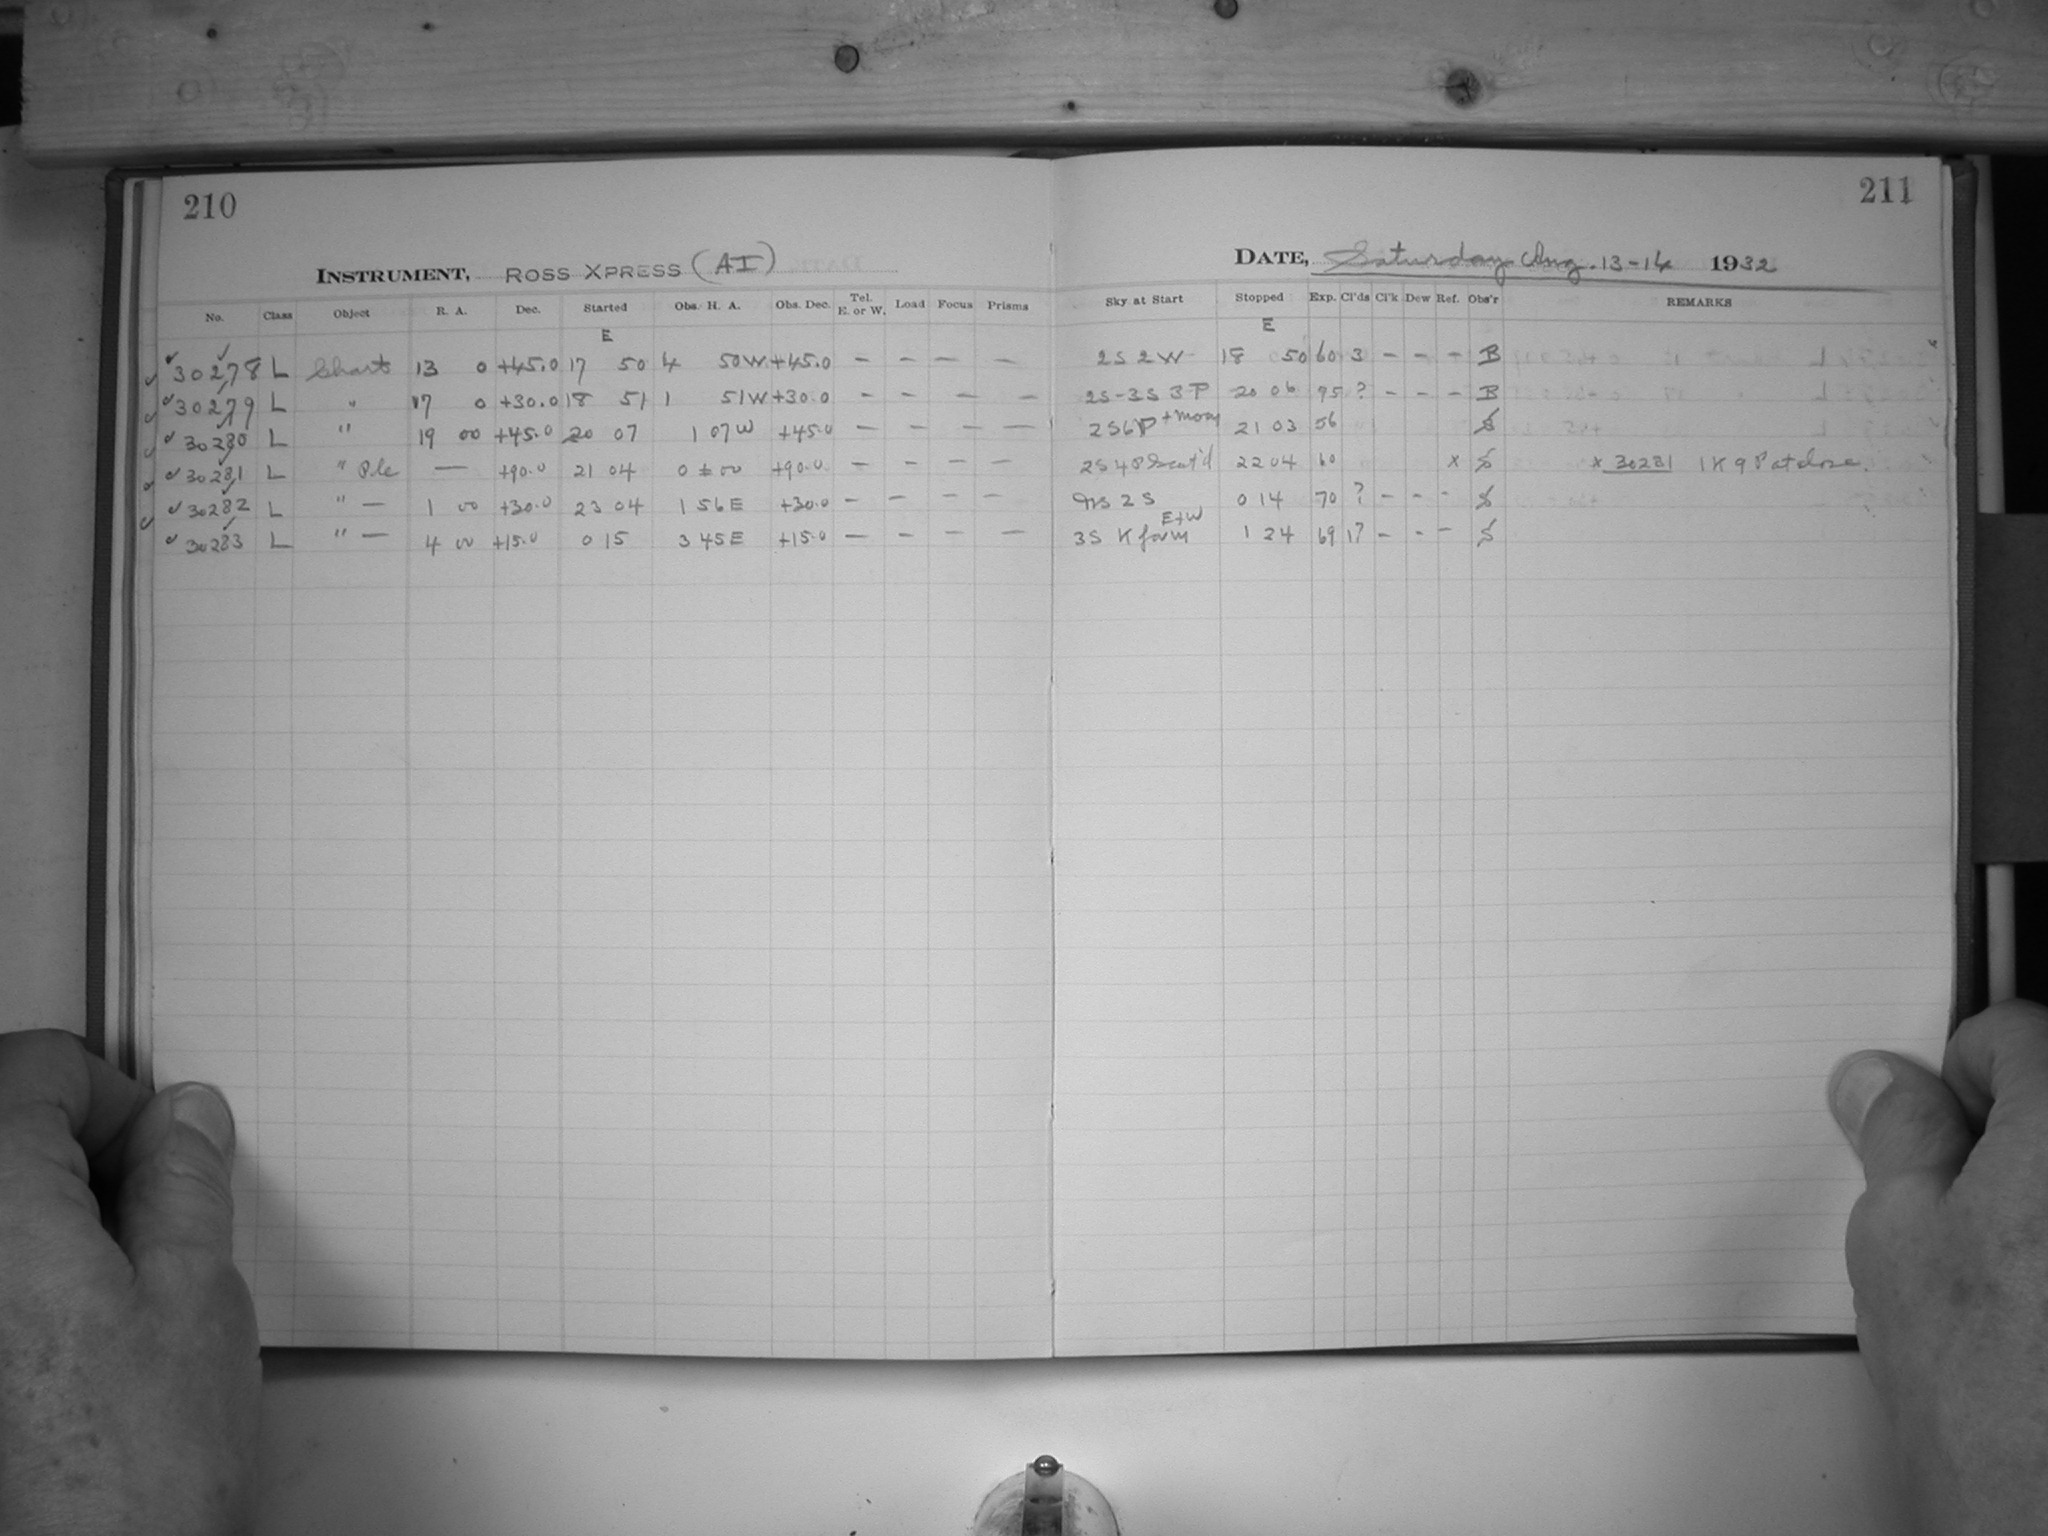 210
INSTRUMENT, ROSS XPRESS (AI)
No. Class Object R. A. Dec. Started Obs. H. A. Obs. Dec. Tel. E. or W. Load Focus Prisms
E
30278 L Chart 13 0 +45.0 17 50 4 50W +45.0 — — — —
30279 L " 17 0 +30.0 18 51 1 51W +30.0 — — — —
30280 L " 19 00 +45.0 20 07 1 07W +45.0 — — — —
30281 L " Pole — +90.0 21 04 0 ± 00 +90.0 — — — —
30282 L " — 1 00 +30.0 23 04 1 56E +30.0 — — — —
30283 L " — 4 00 +15.0 0 15 3 45E +15.0 — — — —
211
DATE, Saturday Aug. 13-14 1932
Sky at Start Stopped Exp. Cl'ds Cl'k Dew Ref. Obs'r REMARKS
E
2S 2W 18 50 60 3 — — — B
2S-3S 3P 20 06 75 ? — — — B
2S6P + moon 21 03 56 S
2S 4P Scat'd 22 04 60 x S x 30281 1K 9P at close.
2S 0 14 70 ? — — — S
3S K form E+W 1 24 69 1? — — — S